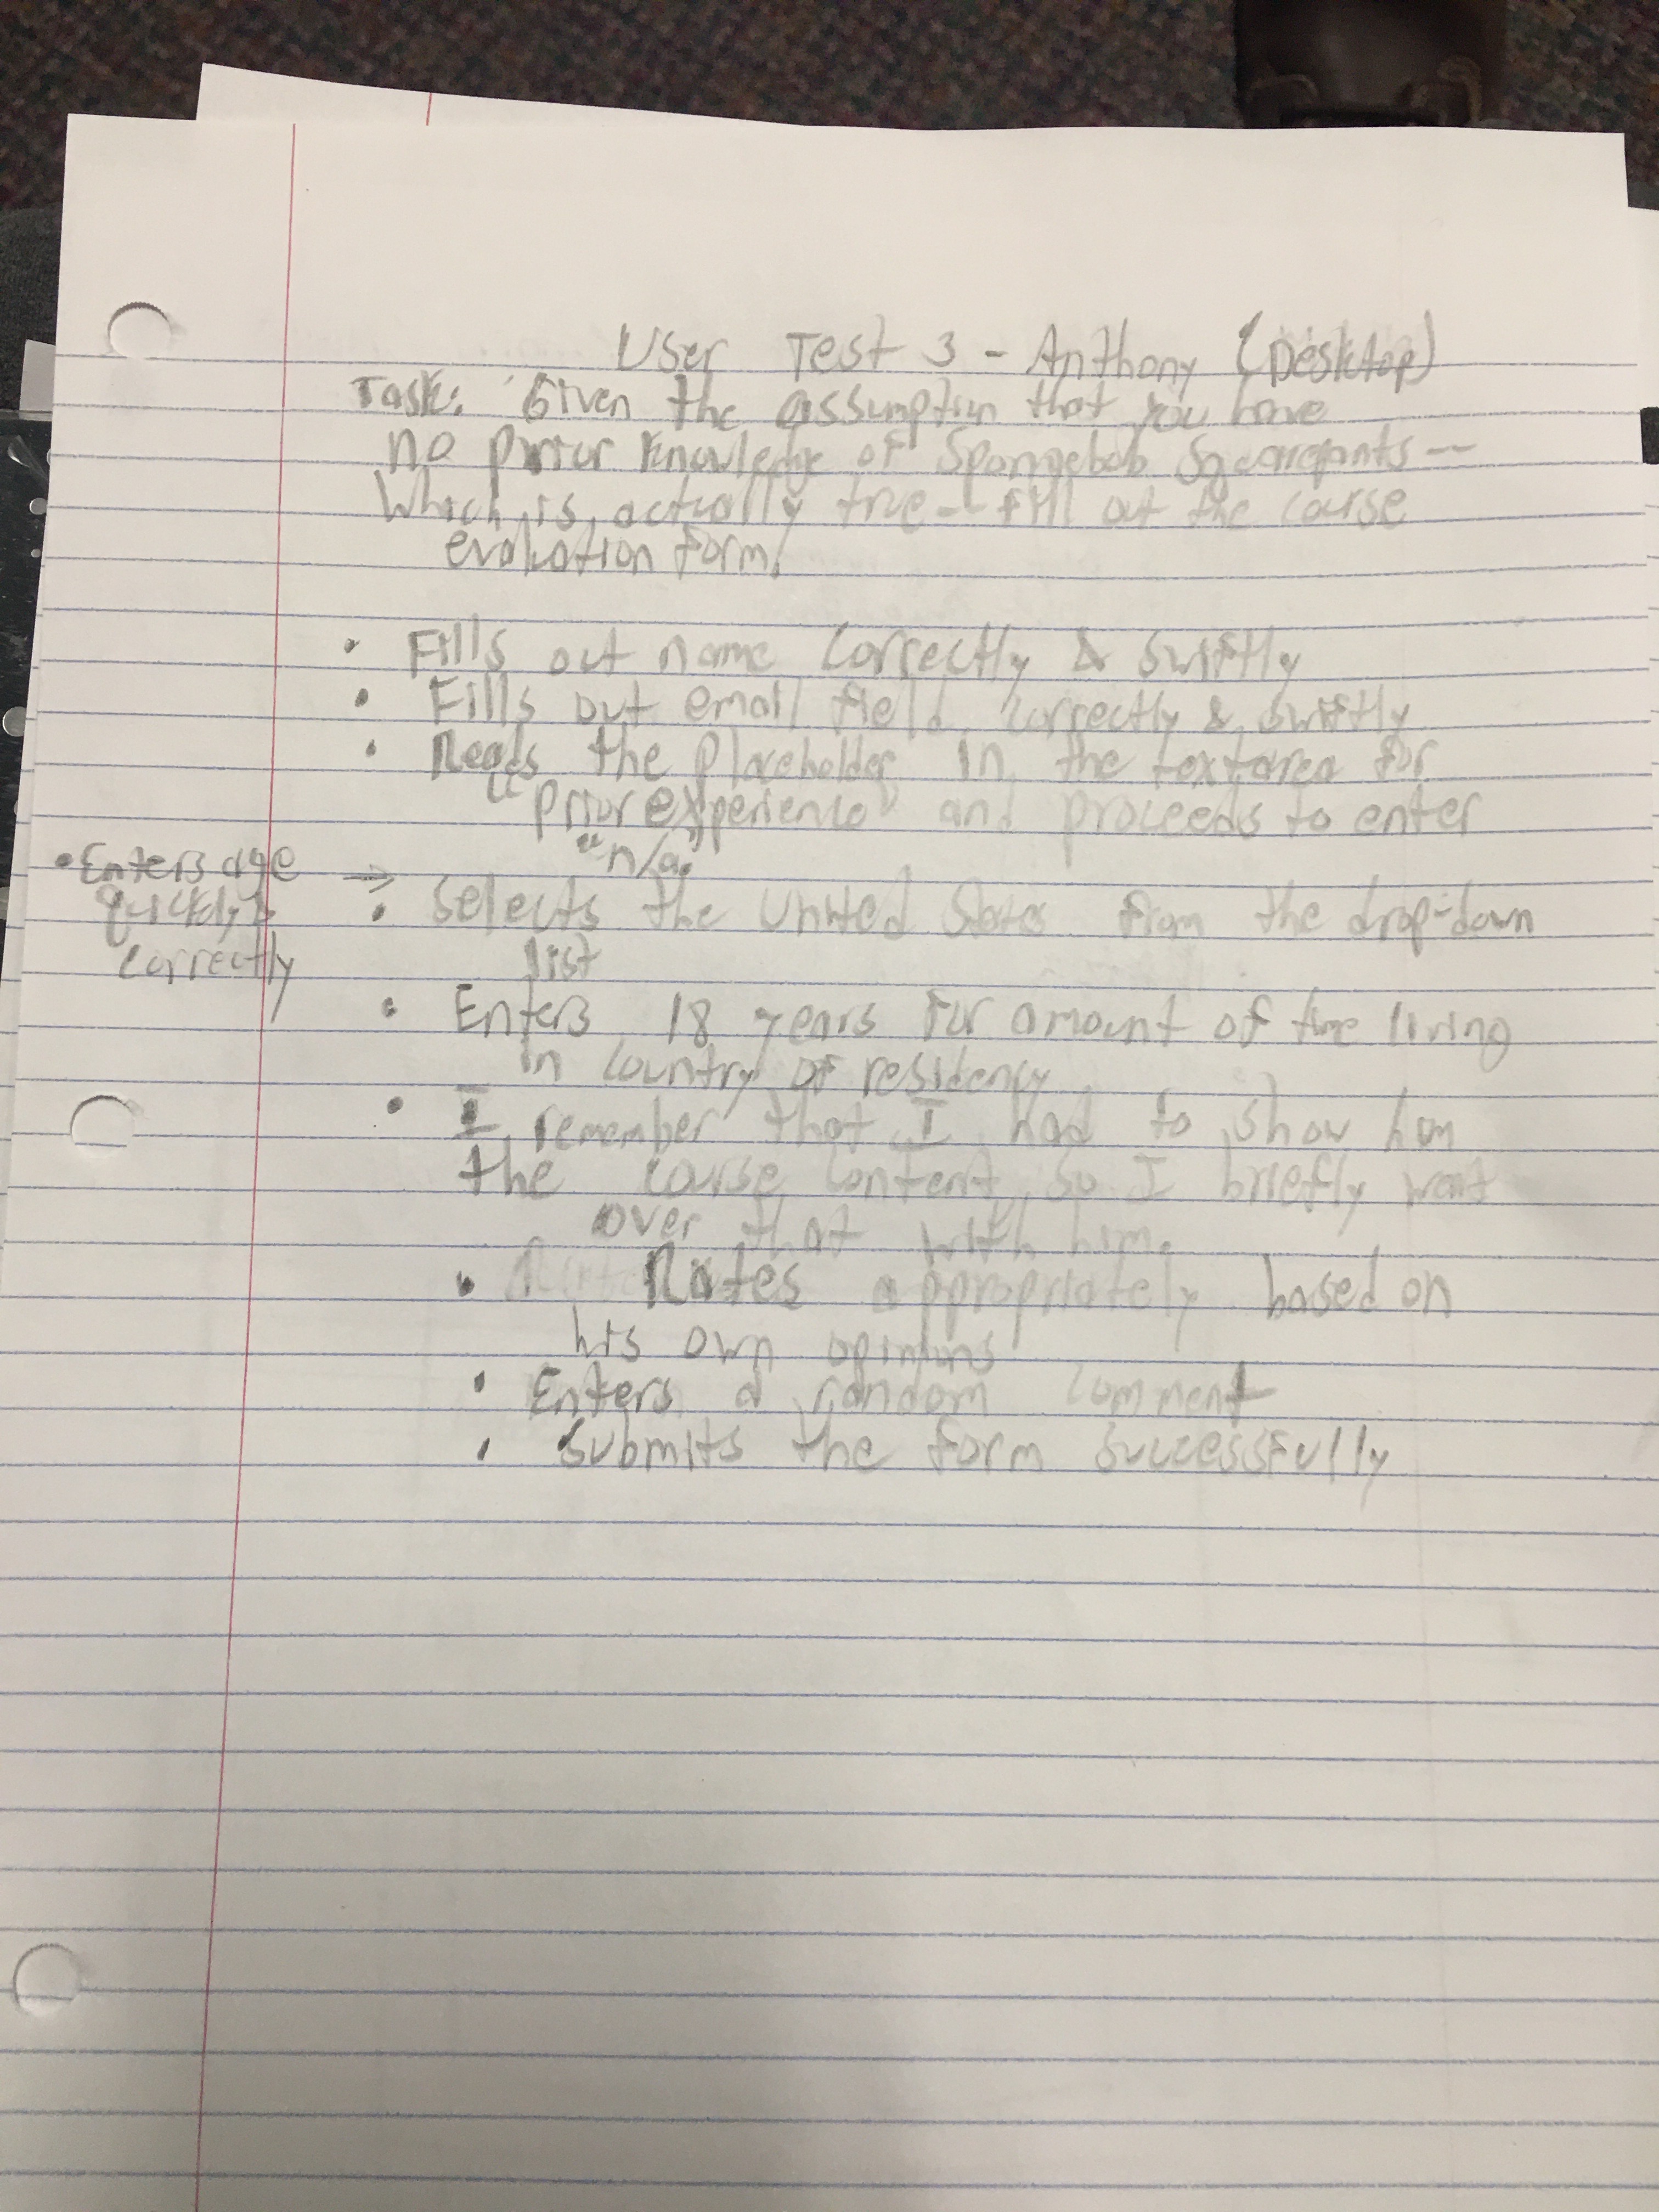 User Test 3 - Anthony (Desktop)
Task: Given the assumption that you have
no prior knowledge of Spongebob Squarepants --
Which is actually true -- fill out the course
evaluation form.
• Fills out name correctly & swiftly
• Fills out email field correctly & swiftly
• Reads the placeholder in the textarea for
"prior experience" and proceeds to enter
"n/a."
• Enters age →
quickly &
correctly
• Selects the United States from the drop-down
list
• Enters 18 years for amount of time living
in country of residency
• I remember that I had to show him
the course content, so I briefly went
over that with him.
• Rates appropriately based on
his own opinions
• Enters a random comment
• Submits the form successfully